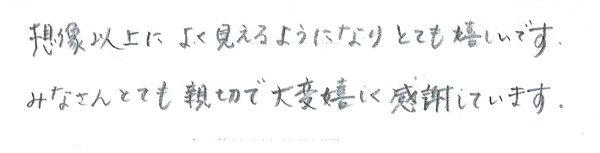 想像以上に よく見えるようになり とても嬉しいです.
みなさんとても 親切で 大変嬉しく 感謝しています.